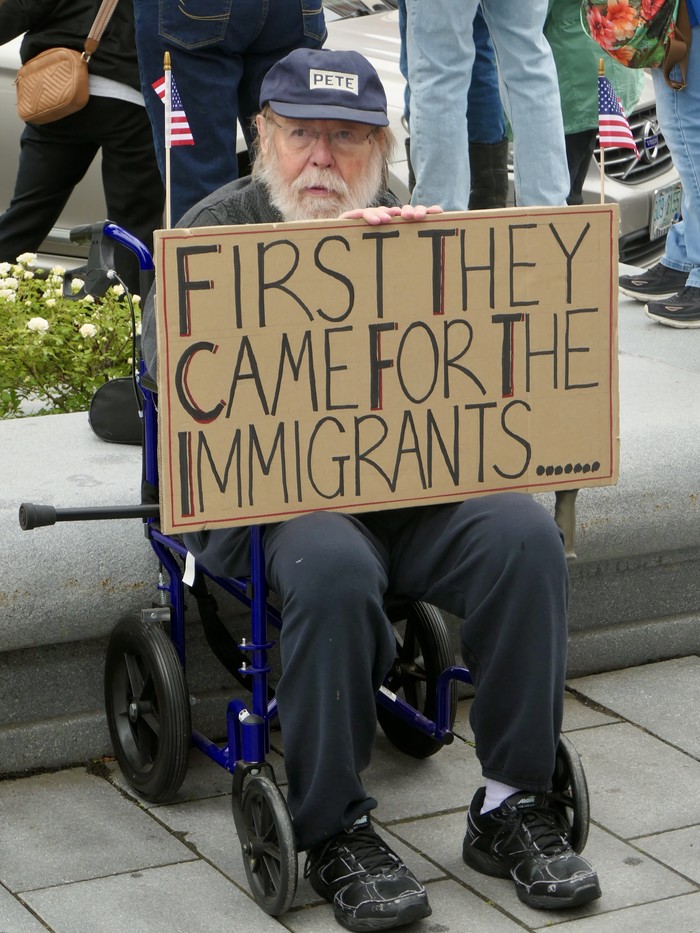 PETE
FIRST THEY
CAME FOR THE
IMMIGRANTS.......